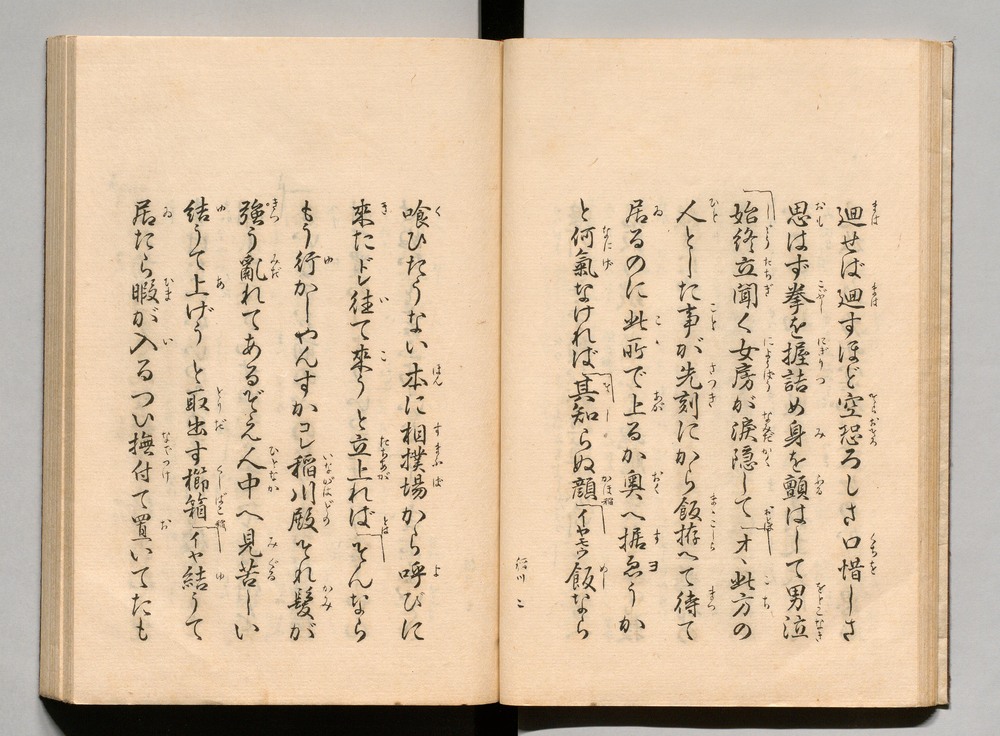 廻せば廻すほど空恐ろしさ口惜しさ
思はず拳を握詰め身を顫はして男泣
始終立聞く女房が涙隠して「オヽ此方の
人とした事が先刻にから飯拵へて待て
居るのに此所で上るか奥へ据ゑうか
と何氣なければ其知らぬ顔「イヤモウ飯なら
稲川 二
喰ひたうない本に相撲場から呼びに
來たドレ往て來うと立上れば「そんなら
もう行かしやんすかコレ稲川殿それ髪が
強う亂れてあるぞえ人中へ見苦しい
結うて上げうと取出す櫛箱「イヤ結うて
居たら暇が入るつい撫付て置いてたも